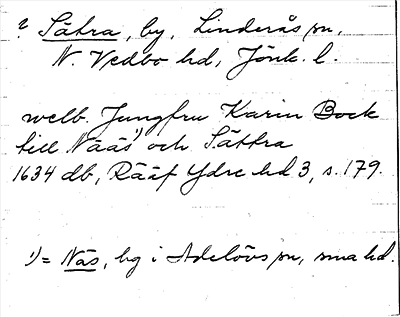 ? Sätra, by, Linderås sn,
N. Vedbo hd, Jönk. l.
welb. Jungfru Karin Bock
till Nääs¹⁾ och Sättra
1634 db, Rääf Ydre hd 3, s. 179.
¹⁾ = Näs, by i Adelövs sn, sma hd.